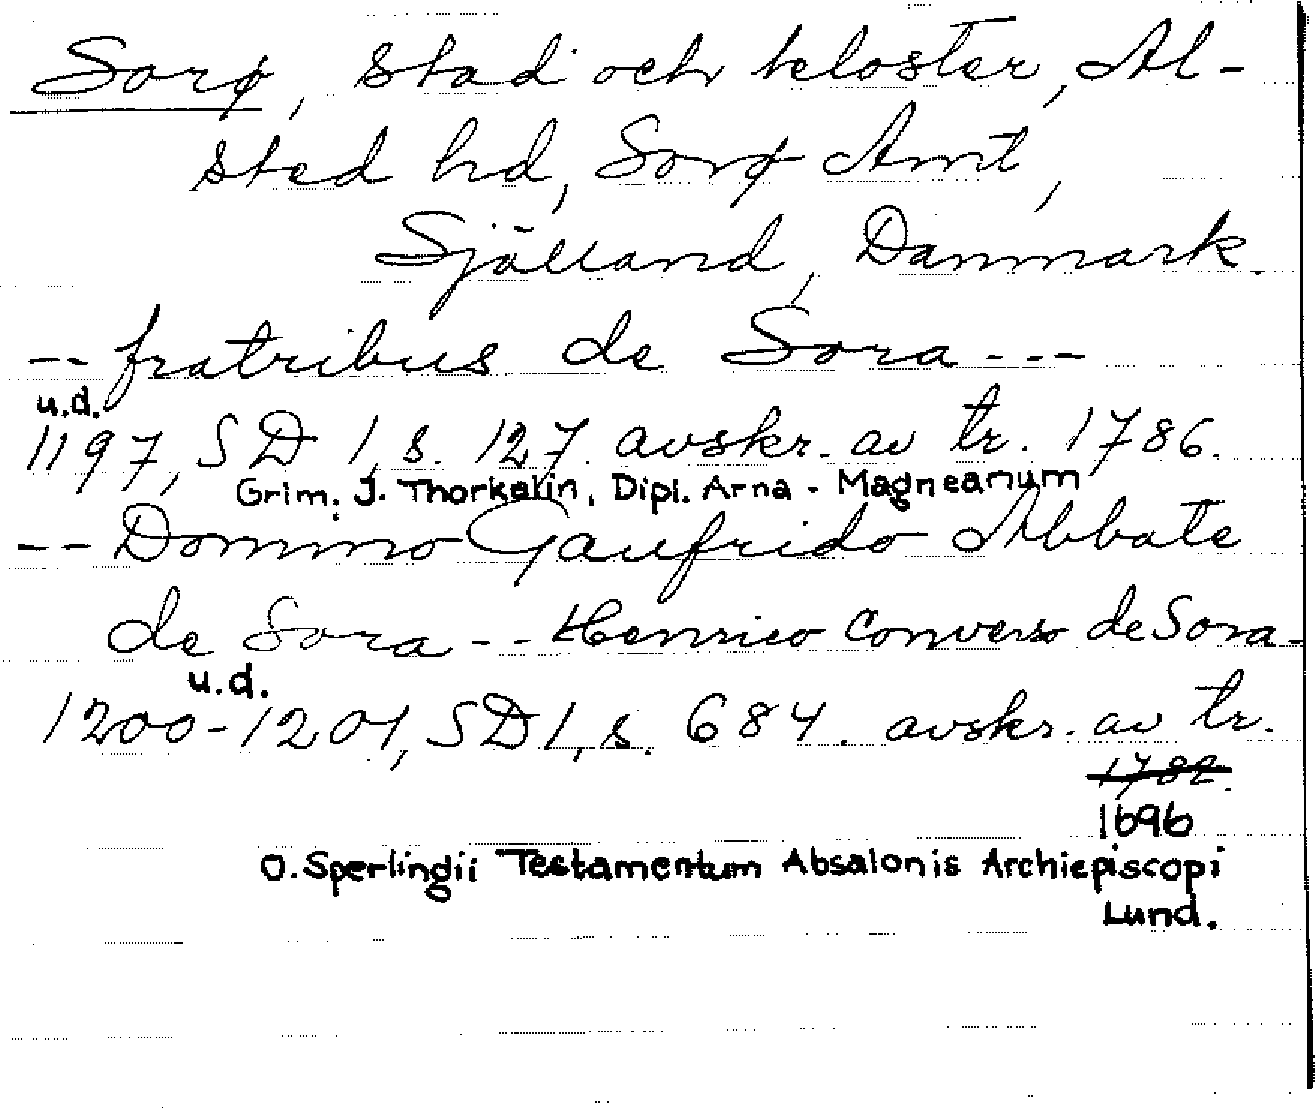 Sorø, stad och kloster, Al-
sted hd, Sorø Amt,
Sjölland, Danmark.
-- fratribus de Sora ---
u.d.
1197, SD 1, s. 127. avskr. av tr. 1786.
Grim. J. Thorkelin, Dipl. Arna - Magneanum
-- Domino Gaufrido Abbate
de Sora -- Henrico Converso de Sora -
u.d.
1200-1201, SD 1, s. 684. avskr. av tr.
1782.
1696
O. Sperlingii Testamentum Absalonis Archiepiscopi
Lund.